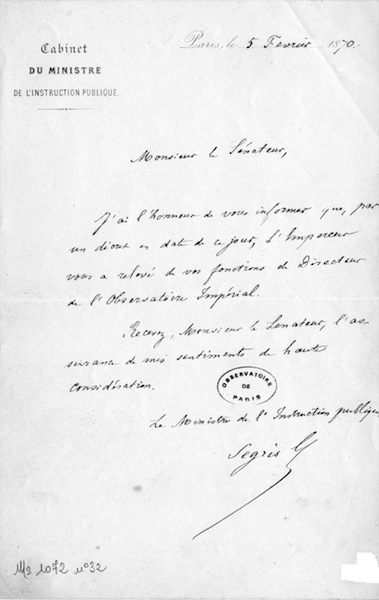 Cabinet
DU MINISTRE
DE L'INSTRUCTION PUBLIQUE.
Paris, le 5 Fevrier 1870.
Monsieur le Sénateur,
J'ai l'honneur de vous informer que, par
un décret en date de ce jour, L'Empereur
vous a relevé de vos fonctions de Directeur
de l'Observatoire Impérial.
Recevez, Monsieur le Senateur, l'as-
surance de mes sentiments de haute
considération.
OBSERVATOIRE
DE
PARIS
Le Ministre de l'Instruction publique
Segris
Ms 1072 n°32